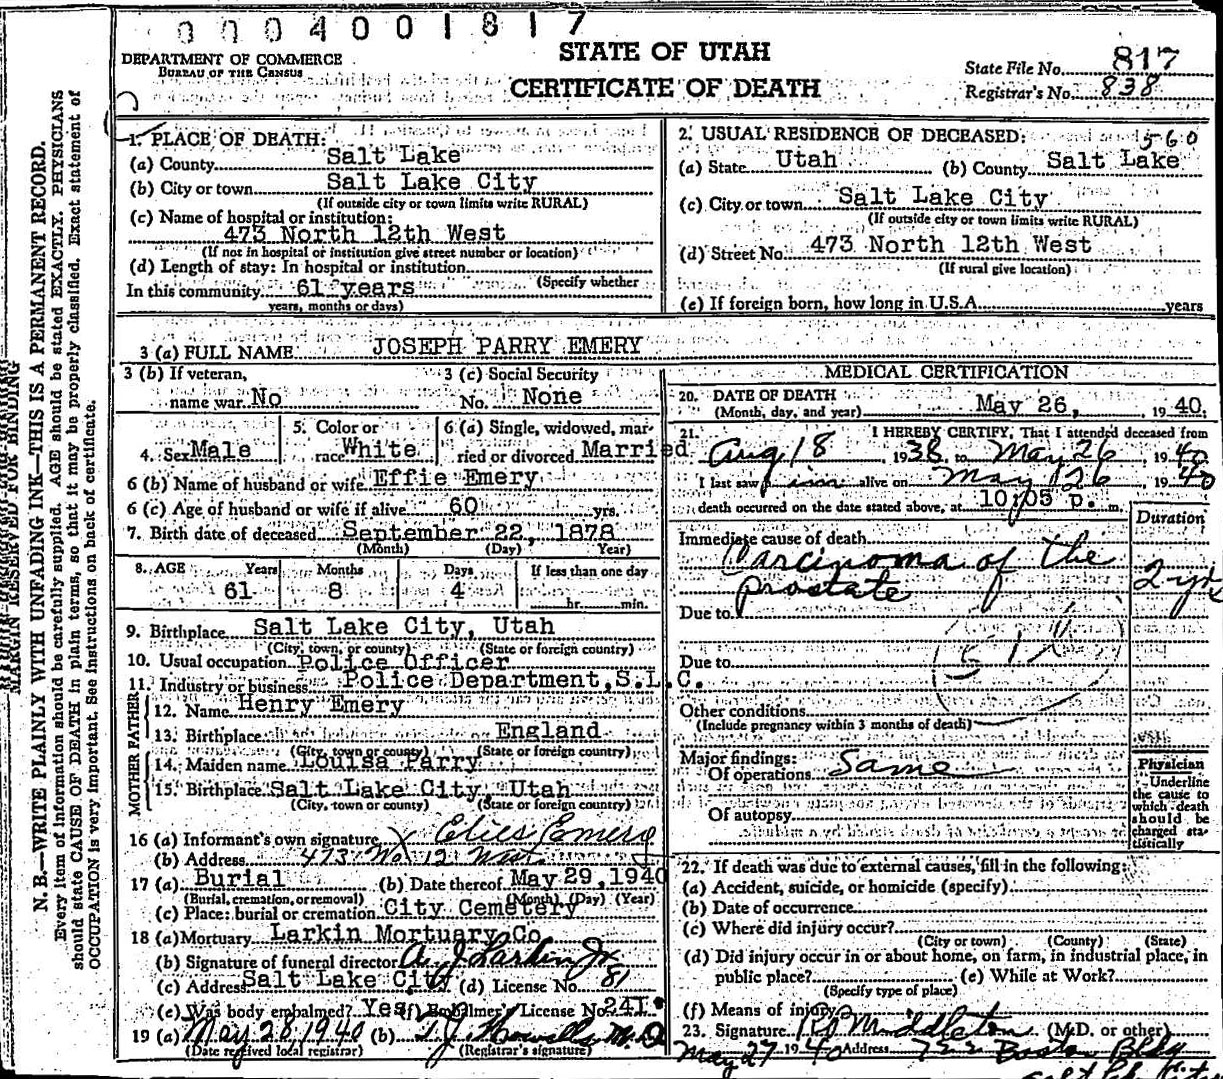 0004001817
DEPARTMENT OF COMMERCE
BUREAU OF THE CENSUS
STATE OF UTAH
CERTIFICATE OF DEATH
State File No. 817
Registrar's No. 838
MARGIN RESERVED FOR BINDING
N. B.—WRITE PLAINLY WITH UNFADING INK—THIS IS A PERMANENT RECORD.
Every item of information should be carefully supplied. AGE should be stated EXACTLY. PHYSICIANS
should state CAUSE OF DEATH in plain terms, so that it may be properly classified. Exact statement of
OCCUPATION is very important. See instructions on back of certificate.
1. PLACE OF DEATH:
(a) County Salt Lake
(b) City or town Salt Lake City
(If outside city or town limits write RURAL)
(c) Name of hospital or institution:
473 North 12th West
(If not in hospital or institution give street number or location)
(d) Length of stay: In hospital or institution
(Specify whether
In this community 61 years
years, months or days)
2. USUAL RESIDENCE OF DECEASED: 560
(a) State Utah (b) County Salt Lake
(c) City or town Salt Lake City
(If outside city or town limits write RURAL)
(d) Street No. 473 North 12th West
(If rural give location)
(e) If foreign born, how long in U.S.A. years
3 (a) FULL NAME JOSEPH PARRY EMERY
3 (b) If veteran, name war No
3 (c) Social Security No. None
4. Sex Male
5. Color or race White
6 (a) Single, widowed, married or divorced Married
6 (b) Name of husband or wife Effie Emery
6 (c) Age of husband or wife if alive 60 yrs.
7. Birth date of deceased September 22, 1878
(Month) (Day) Year)
8. AGE Years Months Days If less than one day
61 8 4 hr. min.
9. Birthplace Salt Lake City, Utah
(City, town, or county) (State or foreign country)
10. Usual occupation Police Officer
11. Industry or business Police Department, S.L.C.
FATHER
12. Name Henry Emery
13. Birthplace England
(City, town or county) (State or foreign country)
MOTHER
14. Maiden name Louisa Parry
15. Birthplace Salt Lake City, Utah
(City, town or county) (State or foreign country)
16 (a) Informant's own signature X Emery
(b) Address 473 No 12 West
17 (a) Burial (b) Date thereof May 29, 1940
(Burial, cremation, or removal) (Month) (Day) (Year)
(c) Place: burial or cremation City Cemetery
18 (a) Mortuary Larkin Mortuary Co
(b) Signature of funeral director A. J. Larkin Jr
(c) Address Salt Lake City (d) License No. 81
(e) Was body embalmed? Yes (f) Embalmer's License No. 241
19 (a) May 28, 1940 (b) M.D.
(Date received local registrar) (Registrar's signature)
MEDICAL CERTIFICATION
20. DATE OF DEATH
(Month, day, and year) May 26, 1940.
21. I HEREBY CERTIFY, That I attended deceased from
Aug 18, 1938, to May 26 1940
I last saw him alive on May 26 1940
death occurred on the date stated above, at 10:05 p. m.
Duration
Immediate cause of death
Carcinoma of the
prostate 2 yrs
Due to
Due to
Other conditions
(Include pregnancy within 3 months of death)
Major findings:
Of operations Same
Of autopsy
Physician
Underline
the cause to
which death
should be
charged sta-
tistically
22. If death was due to external causes, fill in the following:
(a) Accident, suicide, or homicide (specify)
(b) Date of occurrence
(c) Where did injury occur?
(City or town) (County) (State)
(d) Did injury occur in or about home, on farm, in industrial place, in
public place? (e) While at Work?
(Specify type of place)
(f) Means of injury?
23. Signature Middleton (M.D. or other)
May 27 1940 Address 722 Boston Bldg
Salt Lk City